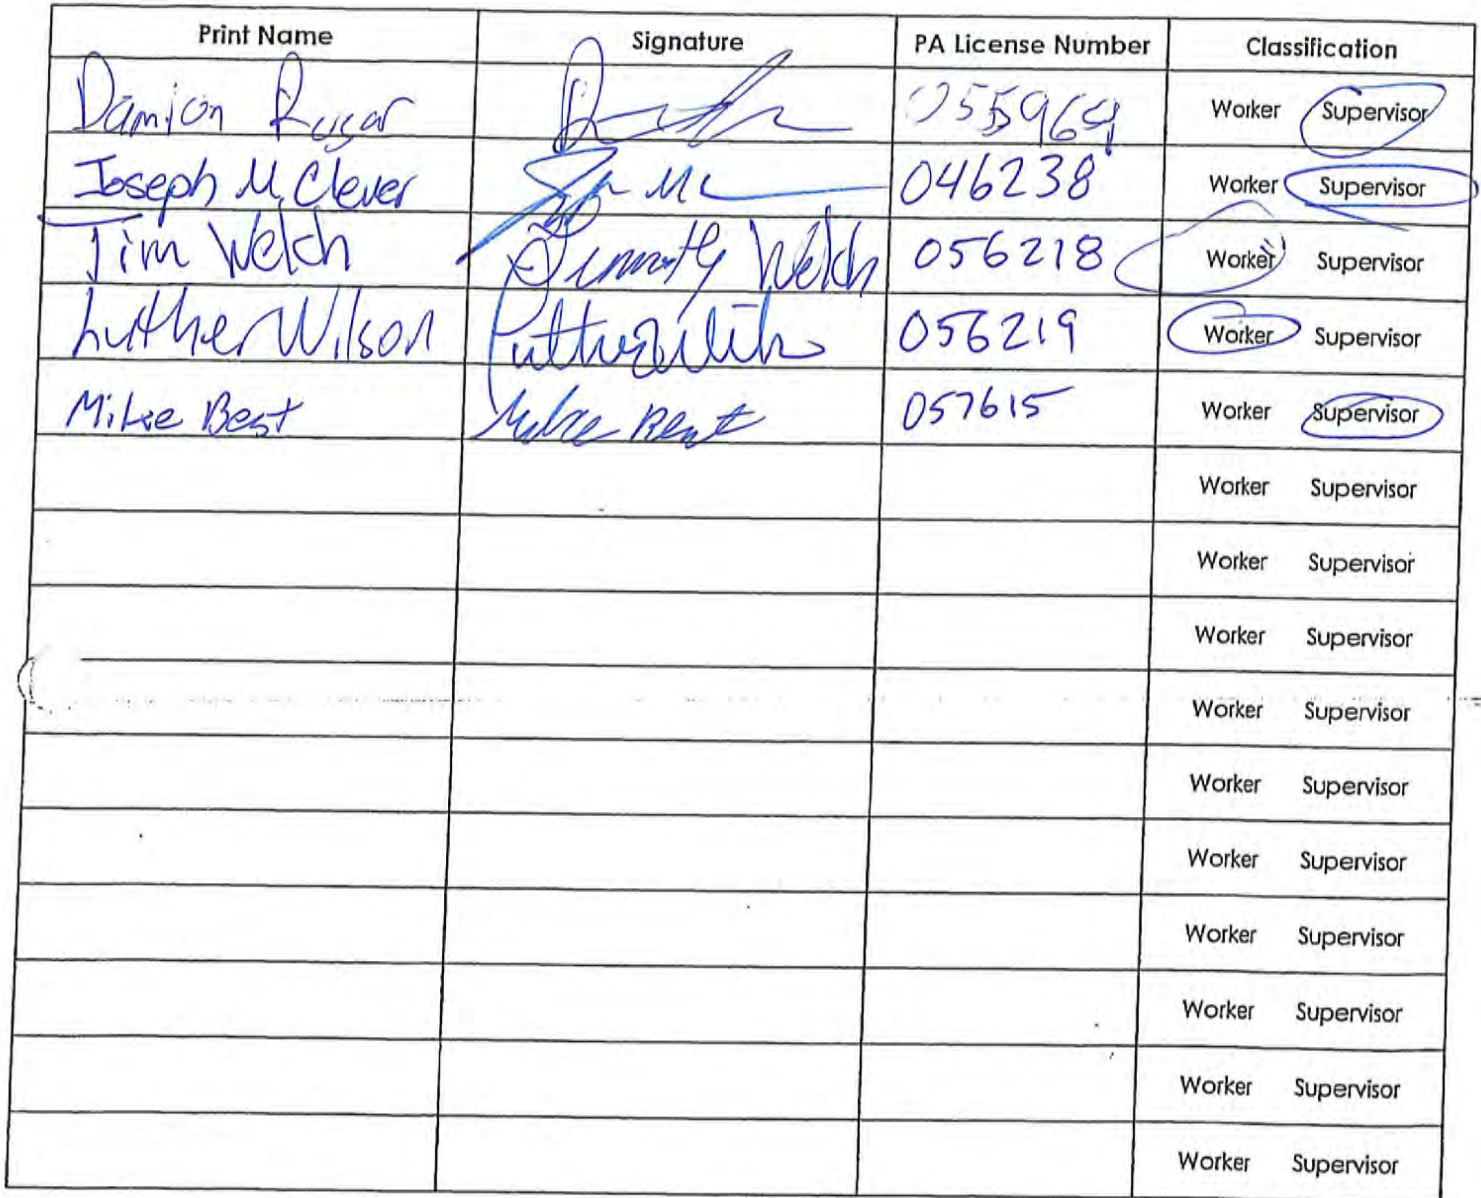 Print Name Signature PA License Number Classification
Damion Rugar 055964 Worker Supervisor
Joseph M Clever 046238 Worker Supervisor
Tim Welch Timothy Welch 056218 Worker Supervisor
Luther Wilson 056219 Worker Supervisor
Mike Best Mike Best 057615 Worker Supervisor
Worker Supervisor
Worker Supervisor
Worker Supervisor
Worker Supervisor
Worker Supervisor
Worker Supervisor
Worker Supervisor
Worker Supervisor
Worker Supervisor
Worker Supervisor